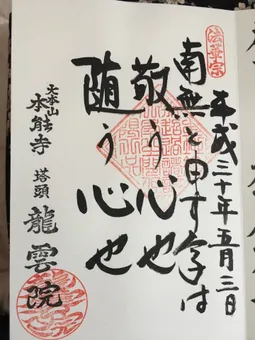 法華宗
平成三十年五月三日
南無と申す字は
敬う心也
随う心也
大本山
本能寺
塔頭
龍雲院